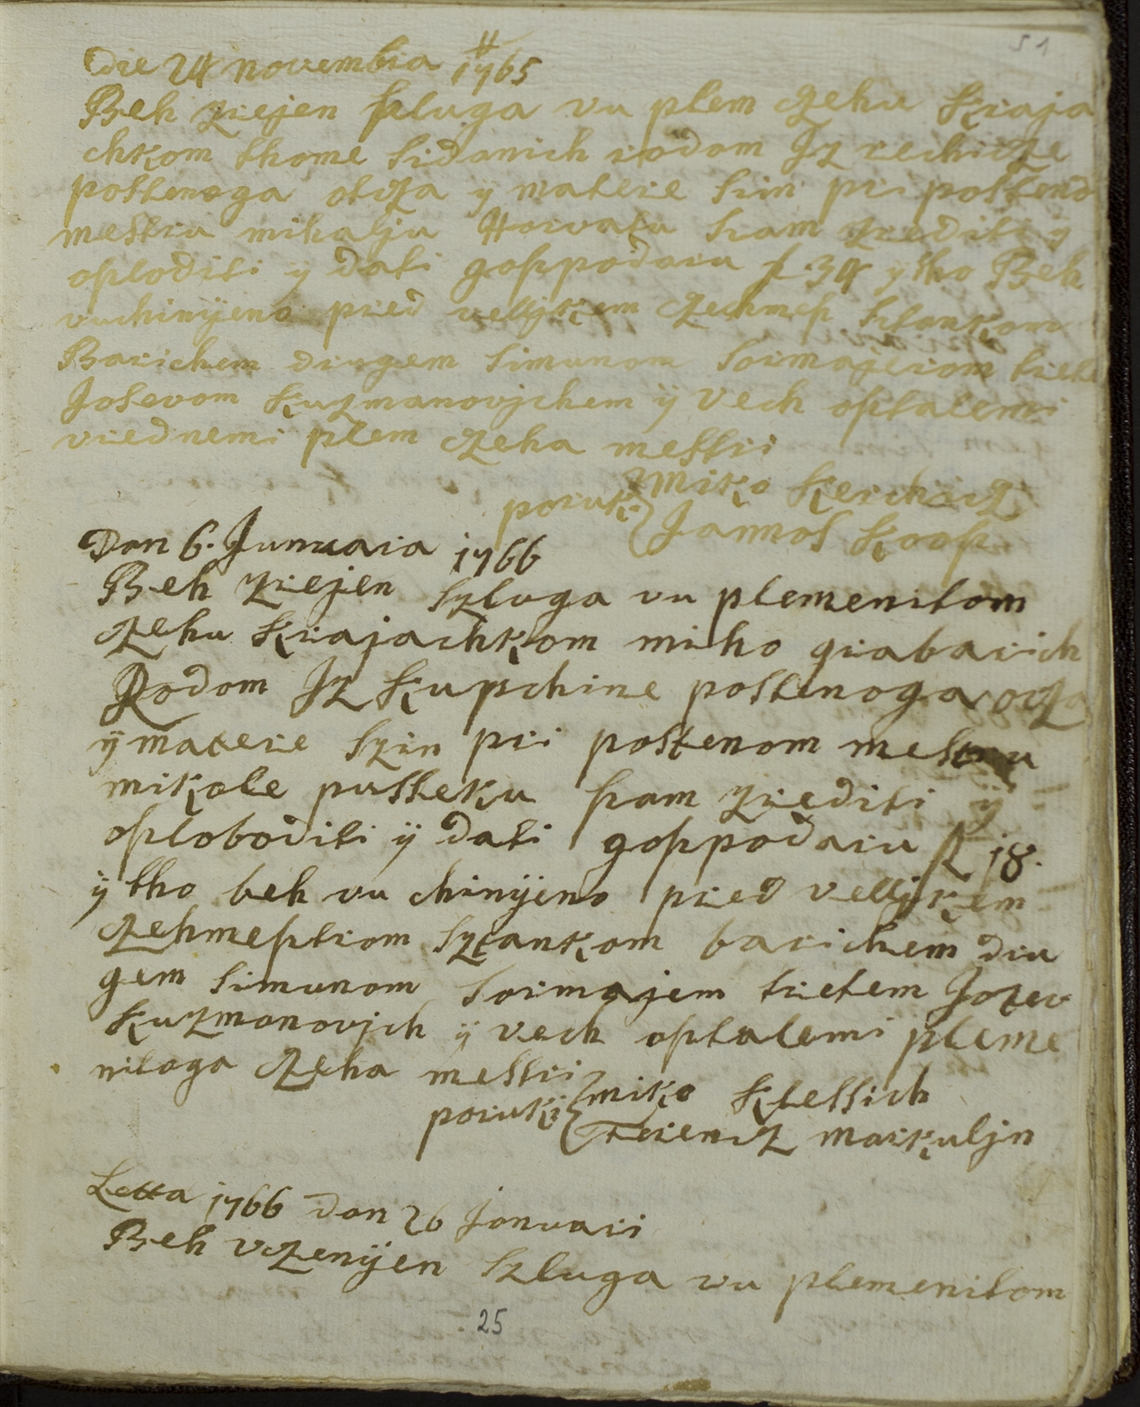 51
Die 24 novembra 1765
Beh zrejen szluga vu plem czehu kraja
chkom thome sidanich rodom Iz rechicze
postenoga otcza y matere szin pri posteno
mestru mikalju Horvatu szam zrediti y
oploditi y dati goszpodaru f. 34 y tho Beh
vuchinÿeno pred velljkem czehmesh sztankom
Barichem drugem simunom sormajerom trete
Josevom kuzmanovjchem ÿ vech osztalemi
vrednemi plem czeha mestri
poruk: miko kerchacz
Jannos koos
Dan 6. Junuara 1766
Beh zrejen szluga vu plemenitom
czehu krajachkom miho grabarich
Rodom Iz kupchine postenoga ocza
ÿ matere szin pri postenom mestru
mikole pusteku szam zrediti ÿ
oszloboditi ÿ dati goszpodaru f 18.
ÿ tho beh vu chinÿeno pred velljkem
czehmesztrom sztankom barichem dru
gem simunom sormajem tretem Jozev
kuzmanovjch ÿ vech osztalemi pleme
nitoga czeha mestri
poruki miko klessich
ferencz markuljn
Letta 1766 dan 26 Januari
Beh vczenÿen szluga vu plemenitom
25